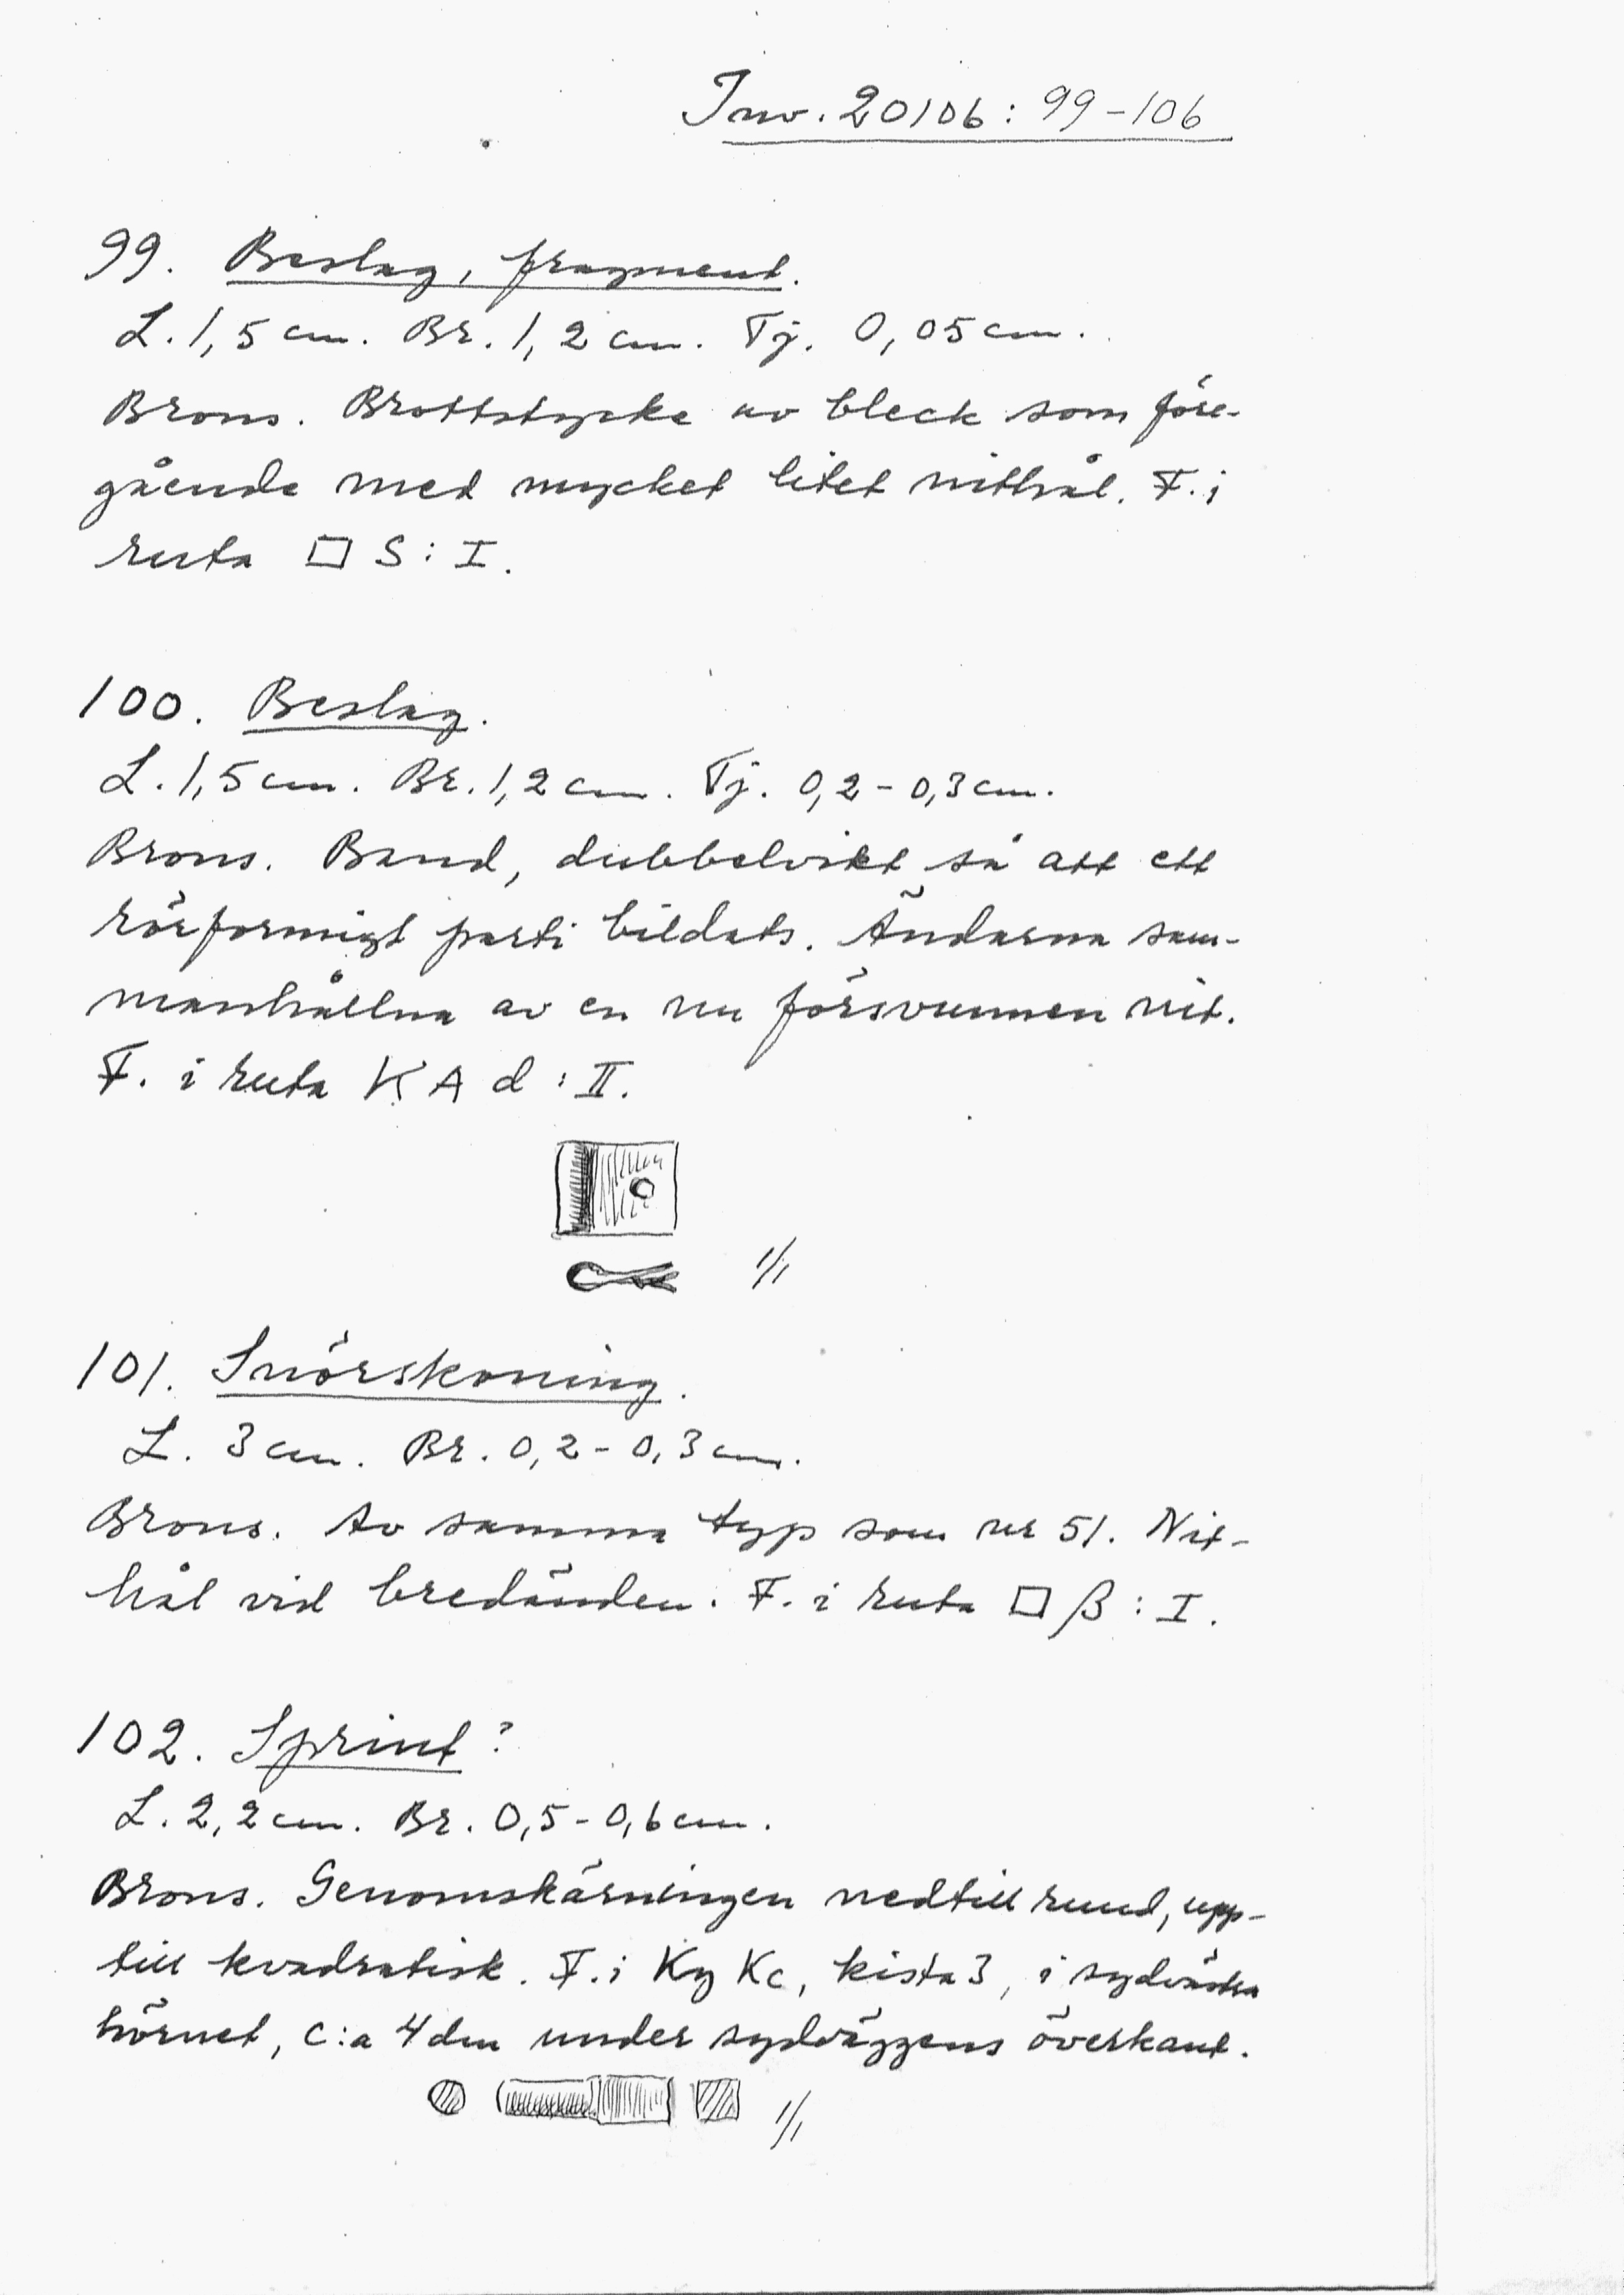 Inv. 20106: 99-106
99. Beslag, fragment.
L. 1,5 cm. Br. 1,2 cm. Tj. 0,05 cm.
Brons. Brottstycke av bleck som före-
gående med mycket litet nithål. F. i
ruta □ S : I.
100. Beslag.
L. 1,5 cm. Br. 1,2 cm. Tj. 0,2 - 0,3 cm.
Brons. Band, dubbelvikt så att ett
rörformigt parti bildats. Ändarna sam-
manhållna av en nu försvunnen nit.
F. i ruta K A d : II.
1/1
101. Snörskoning.
L. 3 cm. Br. 0,2 - 0,3 cm.
Brons. Av samma typ som nr 51. Nit-
hål vid bredänden. F. i ruta □ β : I.
102. Sprint?
L. 2,2 cm. Br. 0,5 - 0,6 cm.
Brons. Genomskärningen nedtill rund, upp-
till kvadratisk. F. i Ky Kc, kista 3, i sydvästra
hörnet, c:a 4 dm under sydväggens överkant.
1/1